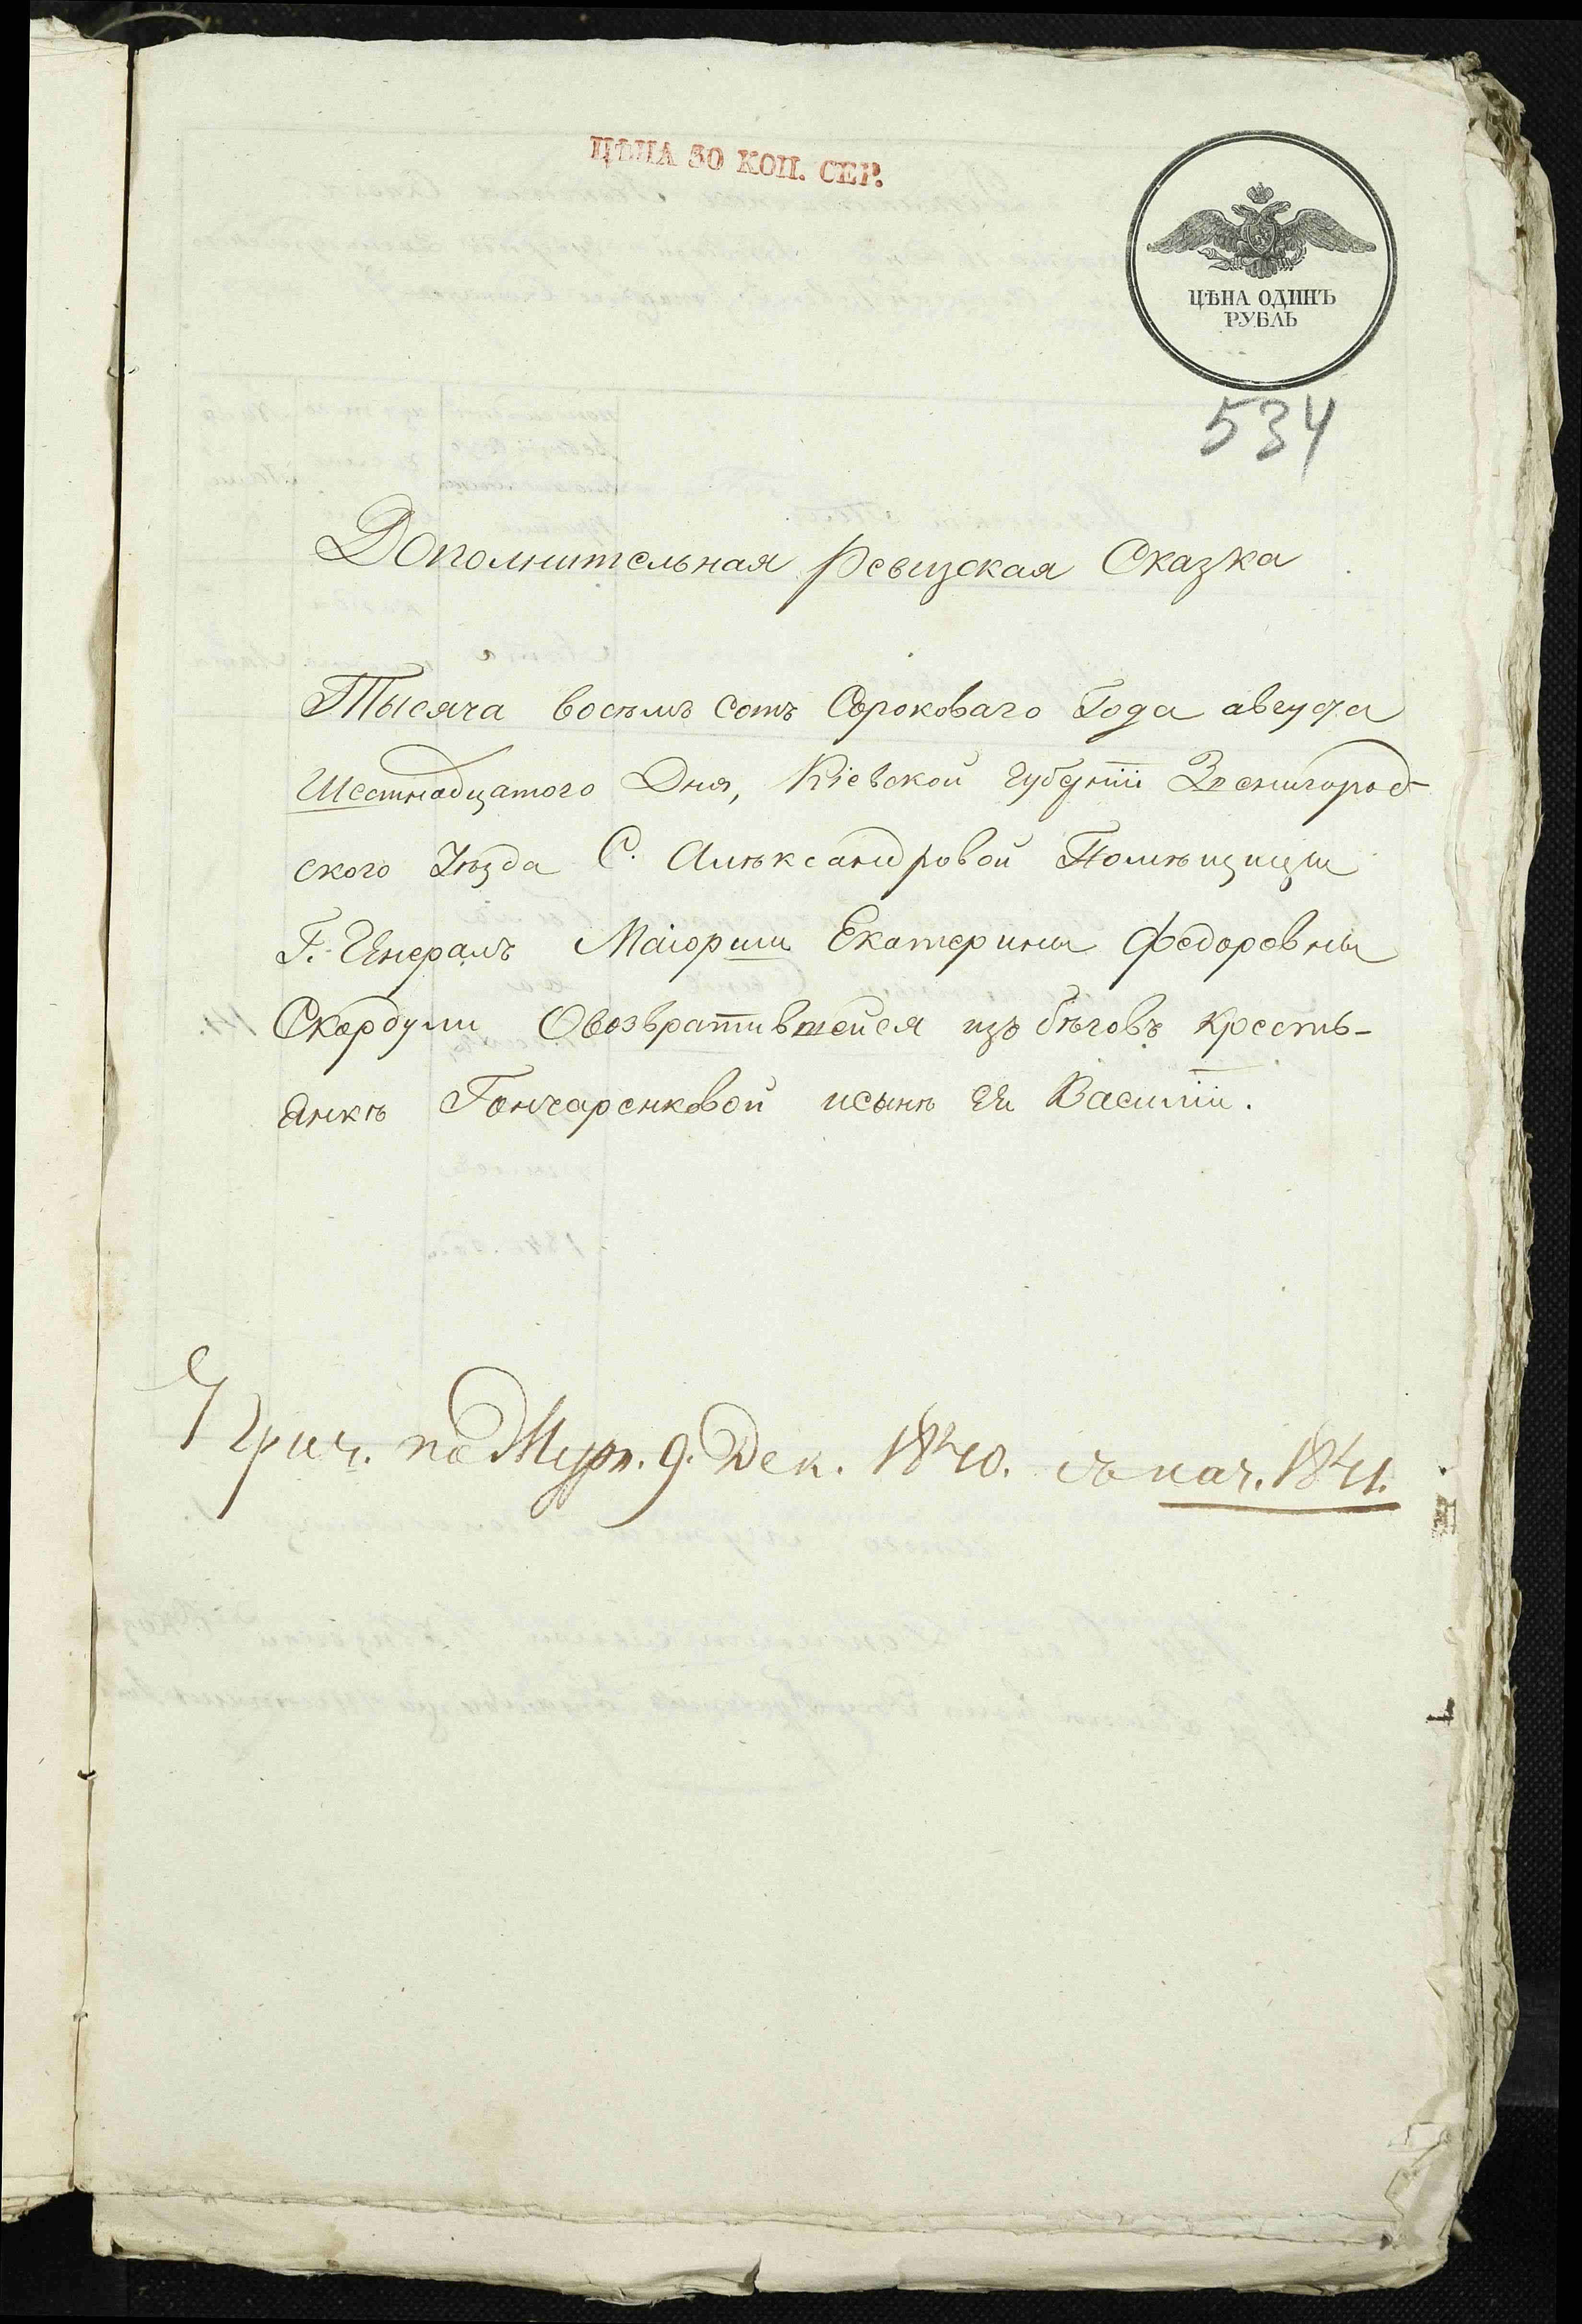 ЦѢНА 30 КОП. СЕР.
ЦѢНА ОДИНЪ
РУБЛЬ
534
Дополнительная Ревизская Сказка
Тысяча восѣмъ Сотъ Сороковаго Года августа
Шестнадцатого Дня, Кіевской Губерніи Звенигород-
ского Уѣзда С. Алѣксандровой Помѣщицы
Г. Генералъ Маіорши Екатерины Федоровны
Скордули Овозвратившейся изъ бѣговъ крестъ-
янкѣ Гончаренковой исынѣ Ея Василіи.
Прич. по Журн. 9. Дек. 1840. съ нач. 1841.